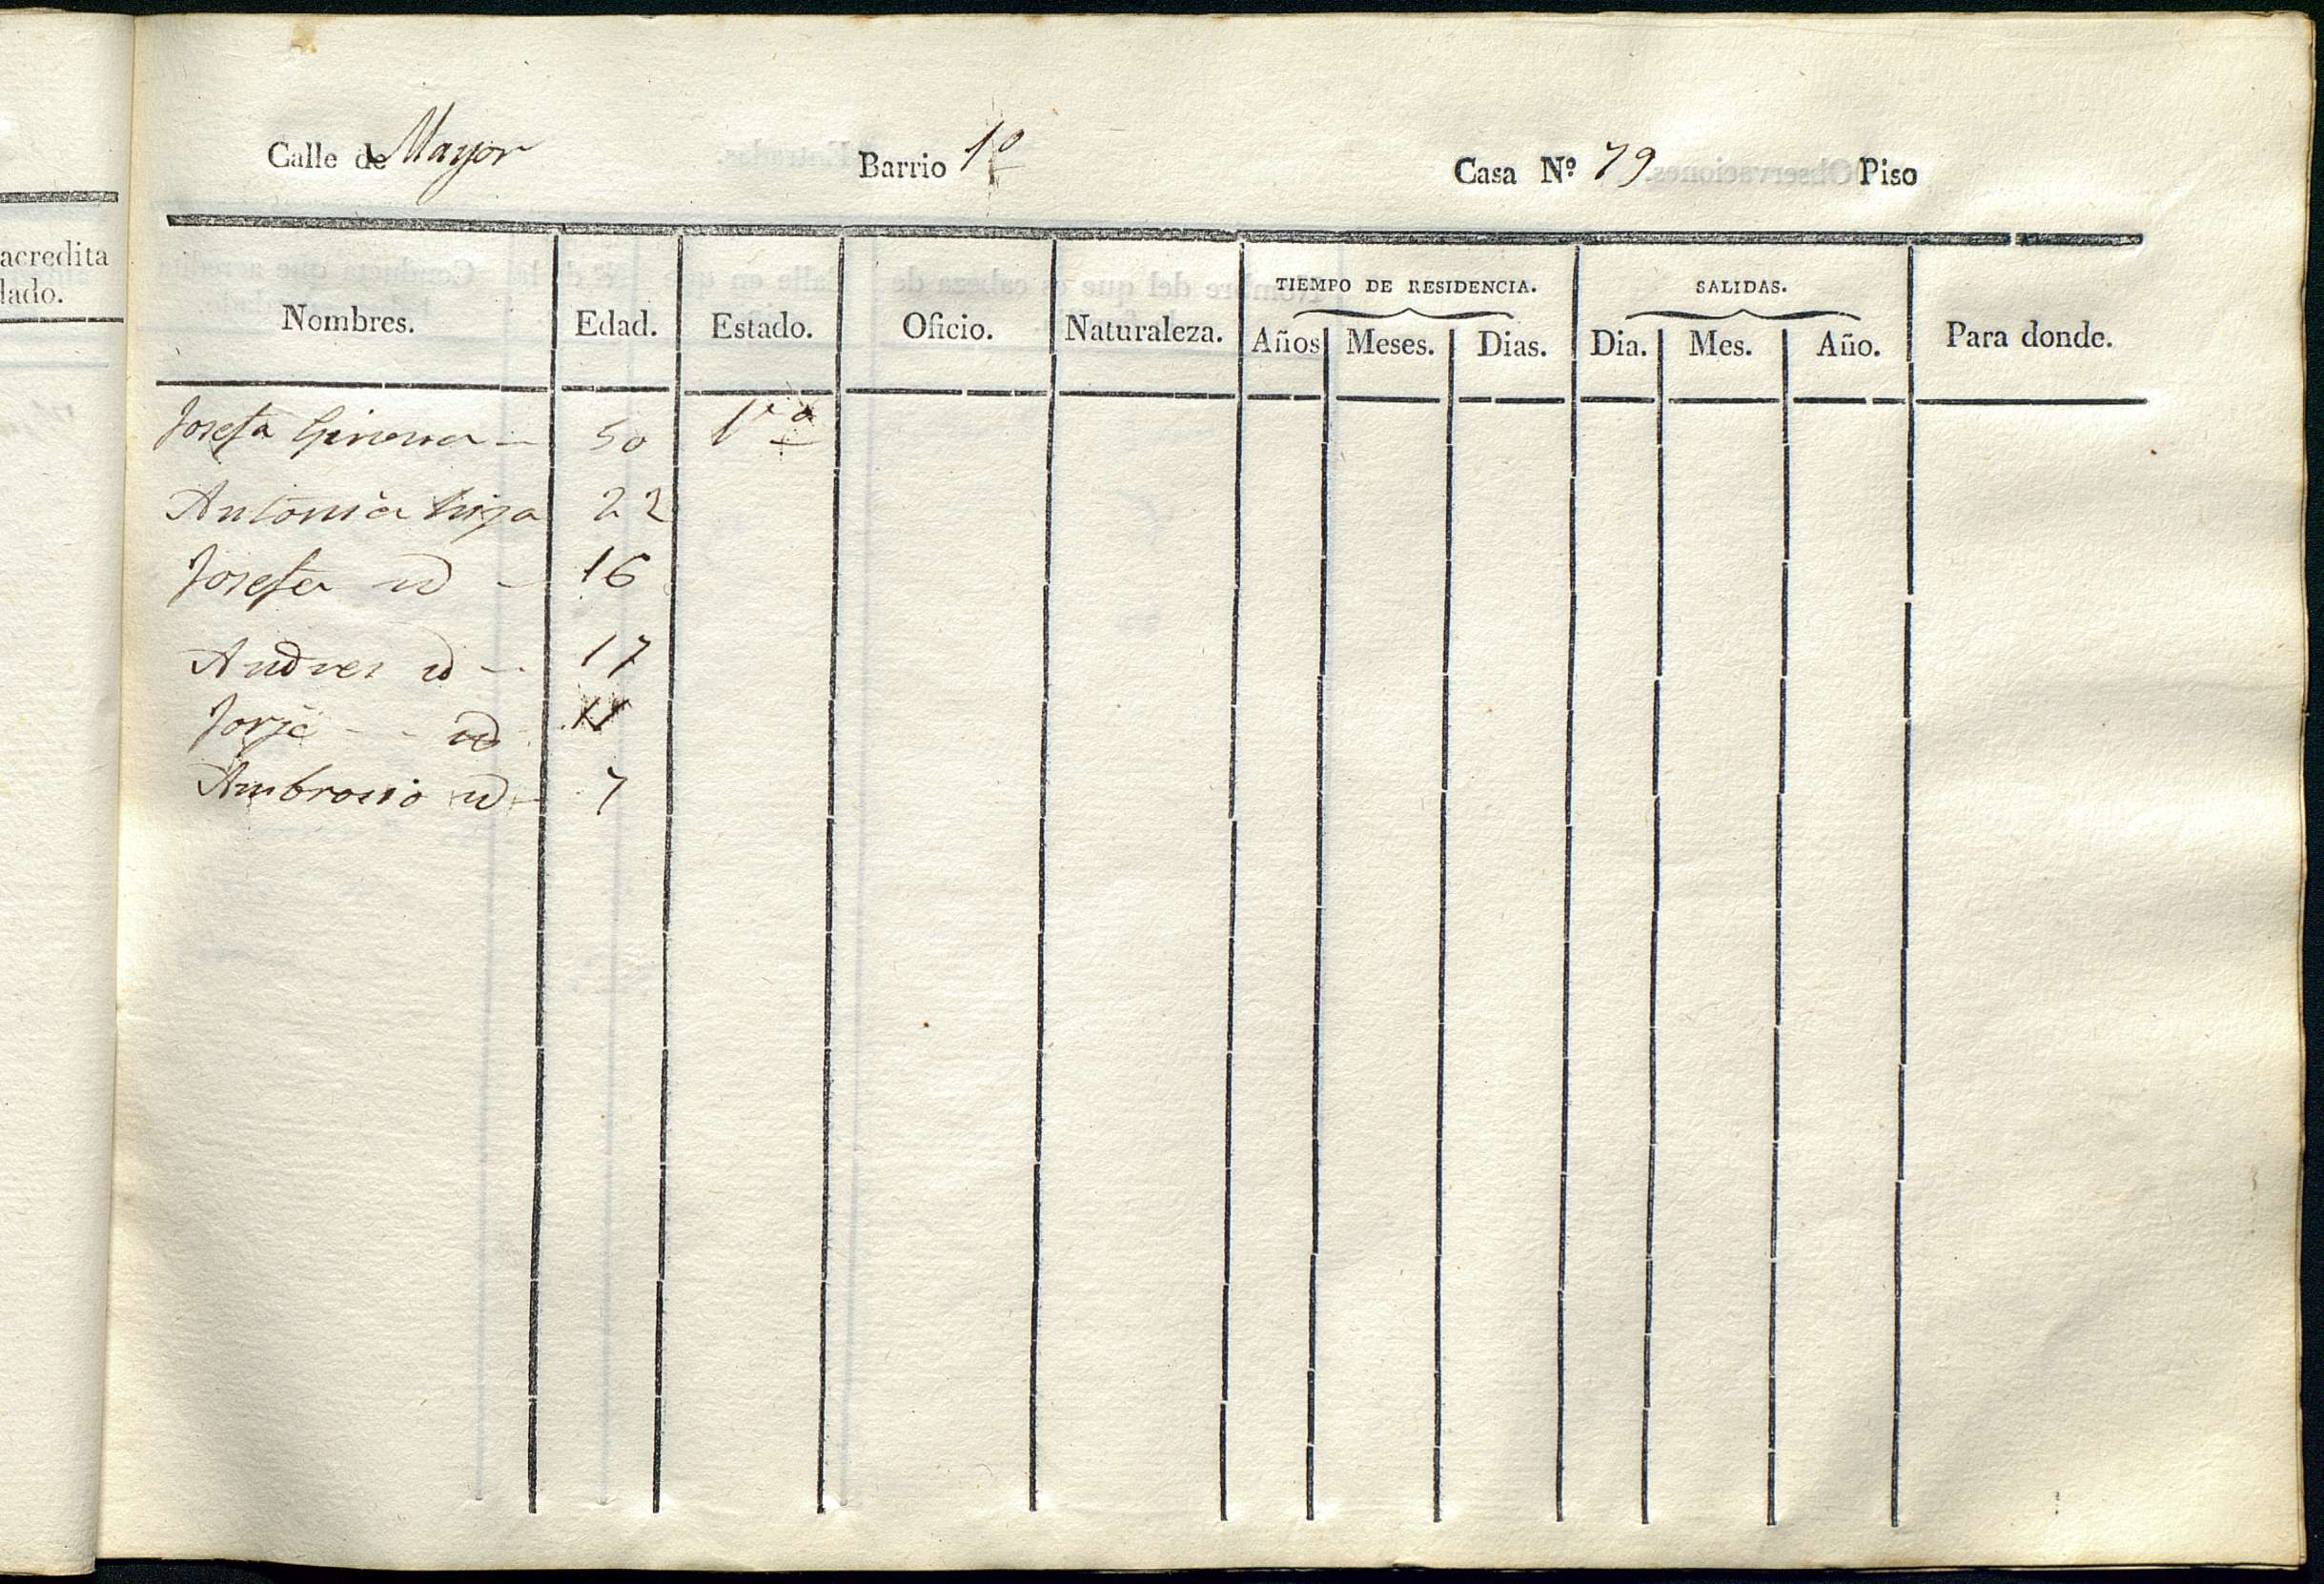 acredita
lado.
Calle de Mayor Barrio 1º Casa Nº 79 Piso
TIEMPO DE RESIDENCIA. SALIDAS.
Nombres. Edad. Estado. Oficio. Naturaleza. Años Meses. Dias. Dia. Mes. Año. Para donde.
Josefa 50 Vª
Antonia hija 22
Josefa id 16
Andres id 17
Jorje id 11
Ambrosio id 7